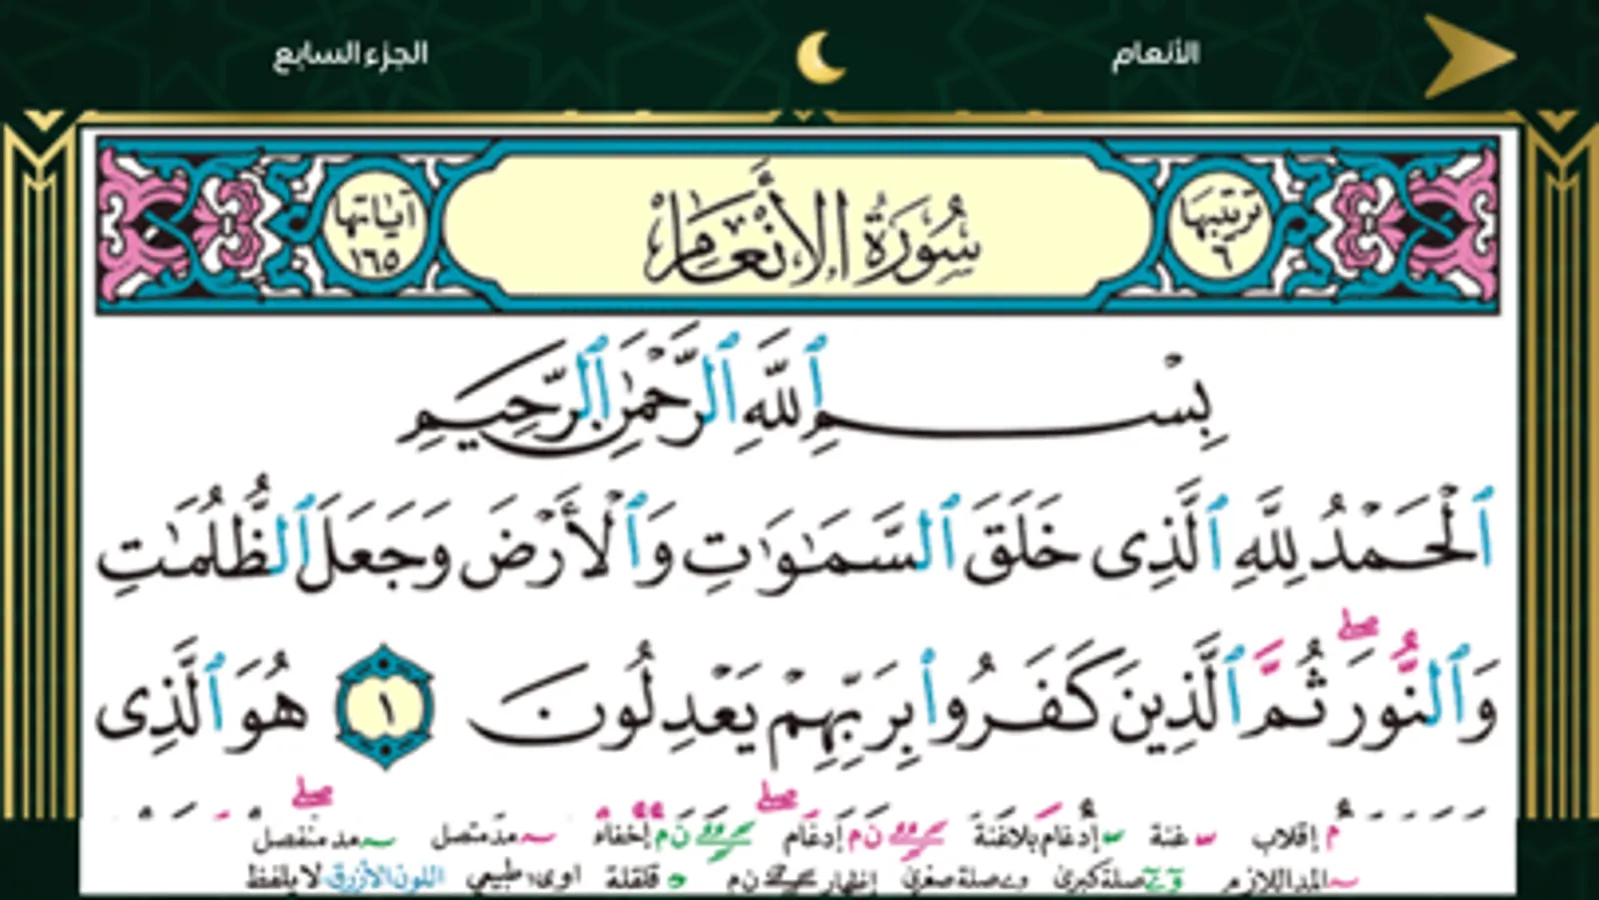 الأنعام
الجزء السابع
ترتيبها ٦
سُورَةُ الأَنْعَامِ
آياتها ١٦٥
بِسْمِ ٱللَّهِ ٱلرَّحْمَٰنِ ٱلرَّحِيمِ
ٱلْحَمْدُ لِلَّهِ ٱلَّذِى خَلَقَ ٱلسَّمَٰوَٰتِ وَٱلْأَرْضَ وَجَعَلَ ٱلظُّلُمَٰتِ
وَٱلنُّورَ ۖ ثُمَّ ٱلَّذِينَ كَفَرُوا۟ بِرَبِّهِمْ يَعْدِلُونَ ١ هُوَ ٱلَّذِى
م إقلاب غنة إدغام بلاغنة ن م إدغام ن م إخفاء مد متصل مد منفصل
المد اللازم صلة كبرى وے صلة صغرى إظهار ن م قلقلة اوى، طبيعي اللون الأزرق لا يلفظ